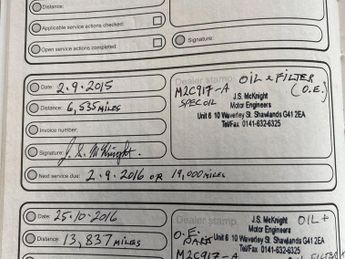 Distance:
Applicable service actions checked:
Open service actions completed
Signature:
Date: 2.9.2015
Distance: 6,535 MILES
Invoice number:
Signature: J. S. McKnight.
Next service due: 2.9.2016 OR 19,000 MILES
Dealer stamp OIL & FILTER
M2C917-A (O.E.)
SPEC OIL
J.S. McKnight
Motor Engineers
Unit 6 10 Waverley St. Shawlands G41 2EA
Tel/Fax 0141-632-6325
Date: 25.10.2016
Distance: 13,837 MILES
Dealer stamp OIL +
O.E.
PARTS
M2C917-A
J.S. McKnight
Motor Engineers
Unit 6 10 Waverley St. Shawlands G41 2EA
Tel/Fax 0141-632-6325